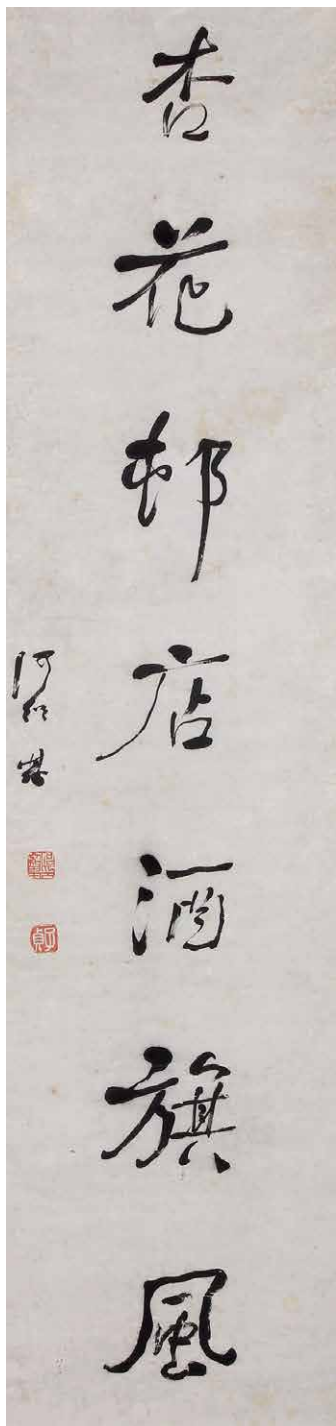 杏花邨店酒旗風
何紹基
子貞